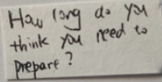 How long do you
think you need to
prepare?